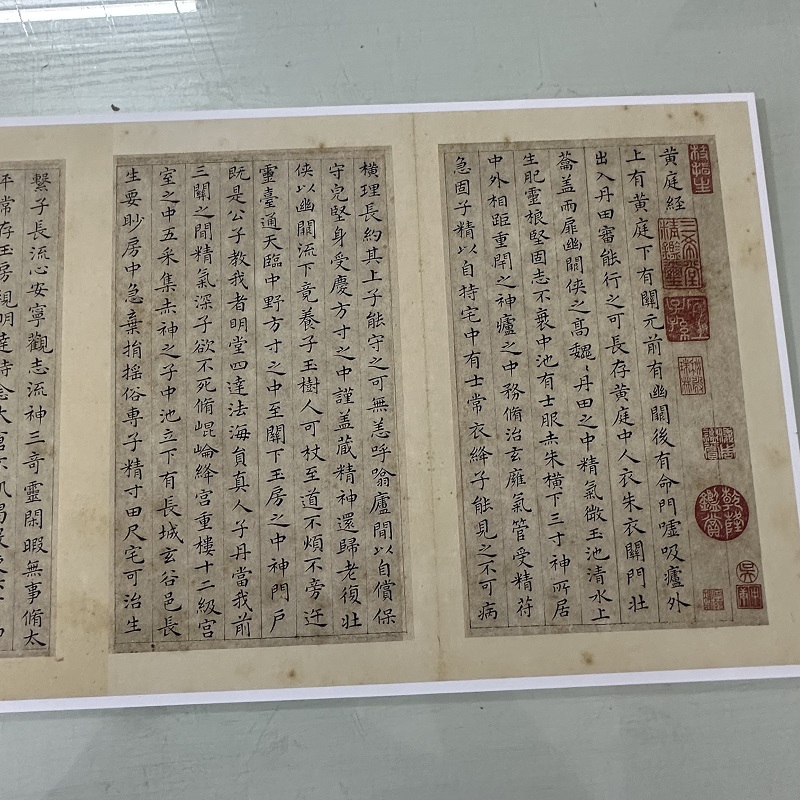 黄庭経
上有黄庭下有關元前有幽關後有命門噓吸廬外
出入丹田審能行之可長存黄庭中人衣朱衣關門壮
蘥盖兩扉幽關俠之髙魏〻丹田之中精氣微玉池清水上
生肥靈根堅固志不衰中池有士服赤朱横下三寸神所居
中外相距重閇之神廬之中務脩治玄廱氣管受精苻
急固子精以自持宅中有士常衣絳子能見之不可病
横理長約其上子能守之可無恙呼噏廬間以自償保
守完堅身受慶方寸之中謹盖蔵精神還歸老復壮
俠以幽關流下竟養子玉樹人可杖至道不煩不旁迕
靈臺通天臨中野方寸之中至關下玉房之中神門户
既是公子教我者明堂四達法海負真人子丹當我前
三關之間精氣深子欲不死脩崐崘絳宫重樓十二級宫
室之中五采集赤神之子中池立下有長城玄谷邑長
生要眇房中急棄捐搖俗専子精寸田尺宅可治生
繫子長流心安寧觀志流神三奇靈閑暇無事脩太
平常存玉房視明達時念大倉